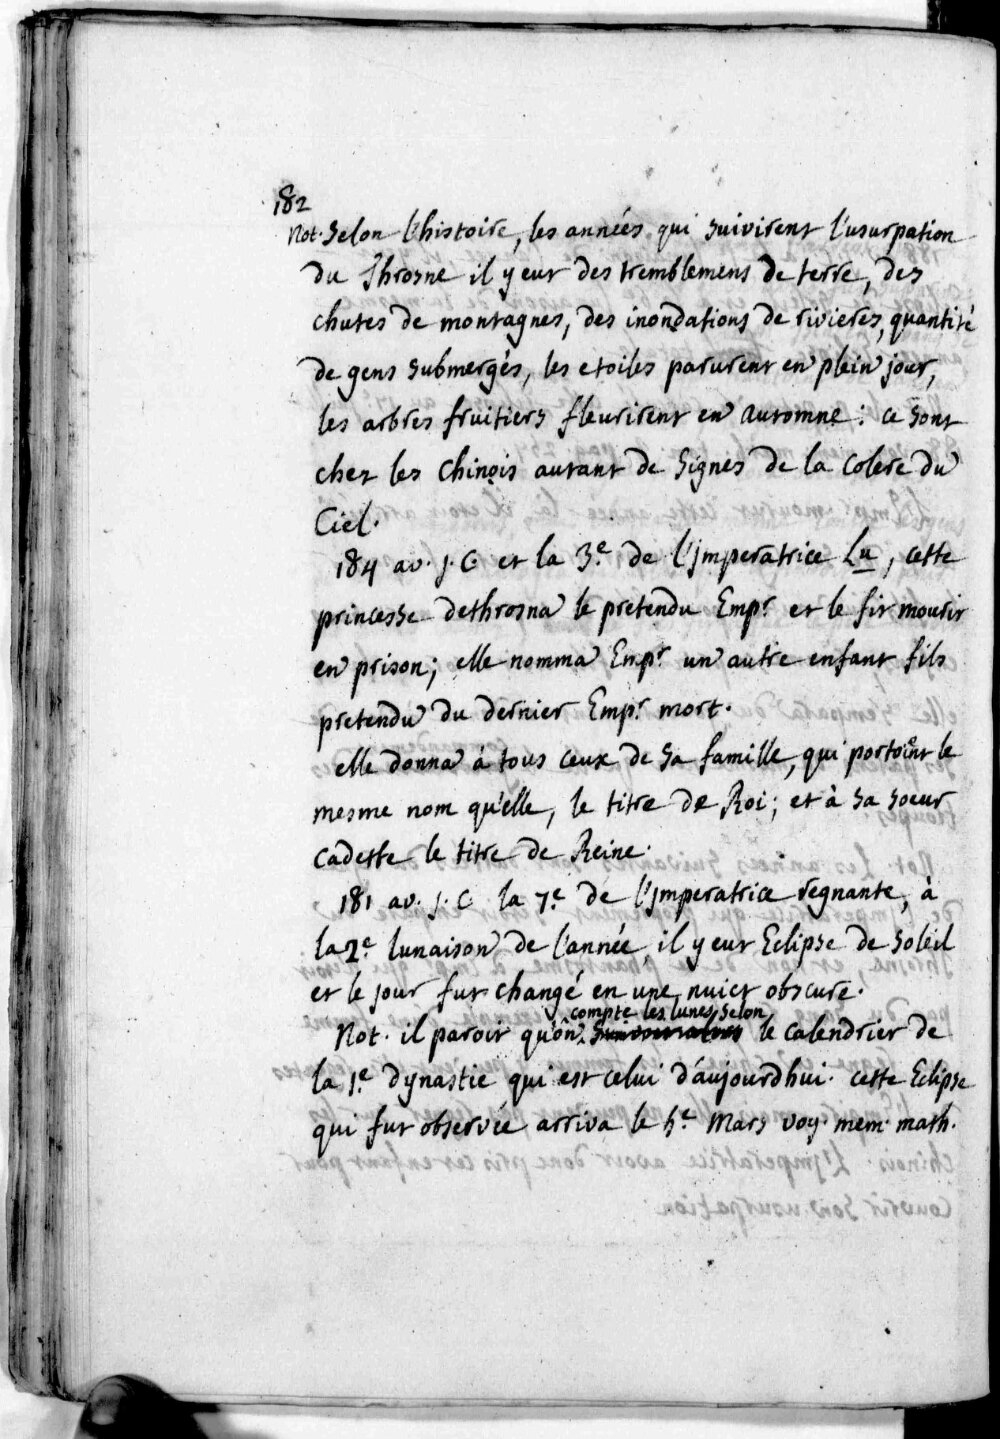 182
Not. Selon l'histoire, les années qui suivirent l'usurpation
du Throsne il y eut des tremblemens de terre, des
chutes de montagnes, des inondations de rivieres, quantité
de gens submergés, les etoiles parurent en plein jour,
les arbres fruitiers fleurirent en automne: ce sont
chez les Chinois autant de signes de la colere du
Ciel.
184 av. J. C. et la 3.e de l'Jmperatrice Lu, cette
princesse dethrosna le pretendu Emp.r et le fit mourir
en prison; elle nomma Emp.r un autre enfant fils
pretendu du dernier Emp.r mort.
elle donna à tous ceux de sa famille, qui portoient le
mesme nom qu'elle, le titre de Roi; et à sa soeur
cadette le titre de Reine.
181 av. J. C. la 7.e de l'Jmperatrice regnante, à
la 2.e lunaison de l'année, il y eut Eclipse de soleil
et le jour fut changé en une nuict obscure.
compte les lunes selon
Not. il paroit qu'on le calendrier de
la 1.e dynastie qui est celui d'aujourdhui. cette Eclipse
qui fut observée arriva le 4.e Mars voy. mem. math.